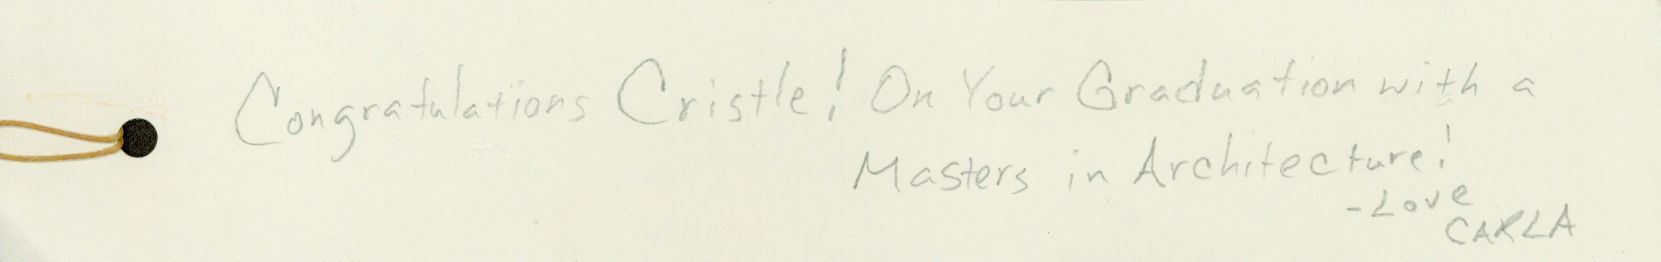 Congratulations Cristle! On Your Graduation with a
Masters in Architecture!
-Love
CARLA